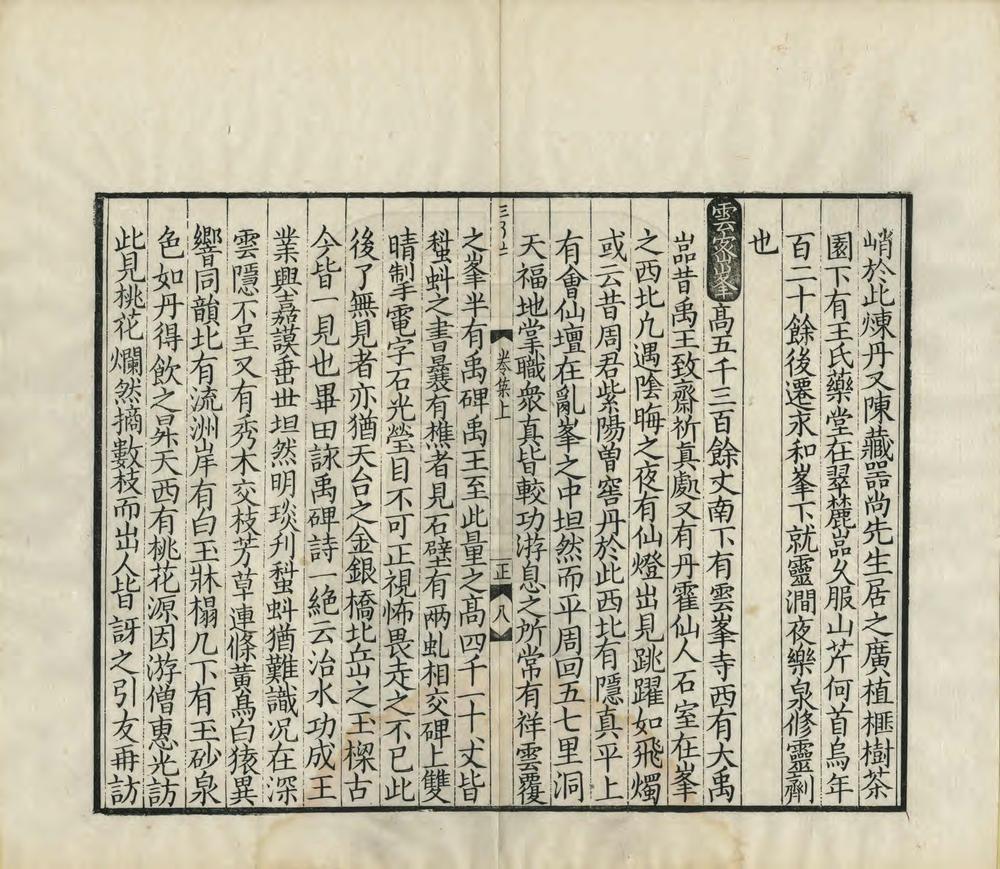 峭於此煉丹又陳藏器尚先生居之廣植榧樹茶
園下有王氏藥堂在翠麓嵓久服山芹何首烏年
百二十餘後遷求和峯下就靈澗夜樂泉修靈劑
也
雲密峯高五千三百餘丈南下有雲峯寺西有大禹
嵓昔禹王致齋祈真處又有丹霍仙人石室在峯
之西北凢遇陰晦之夜有仙燈出見跳躍如飛燭
或云昔周君紫陽曽窖丹於此西北有隱真平上
有會仙壇在亂峯之中坦然而平周回五七里洞
天福地掌職衆真皆較功游息之所常有祥雲覆
卷集上
正
八
之峯半有禹碑禹王至此量之高四千一十丈皆
蝌蚪之書曩有樵者見石壁有兩虬相交碑上雙
睛掣電字石光瑩目不可正視怖畏走之不已此
後了無見者亦猶天台之金銀橋北岳之玉樑古
今皆一見也畢田詠禹碑詩一絕云治水功成王
業興嘉謨垂世坦然明琰刋蝌蚪猶難識况在深
雲隱不呈又有秀木交枝芳草連條黃鳥白猿異
響同韻北有流洲岸有白玉牀榻几下有玉砂泉
色如丹得飲之昇天西有桃花源因游僧惠光訪
此見桃花爛然摘數枝而出人皆訝之引友再訪